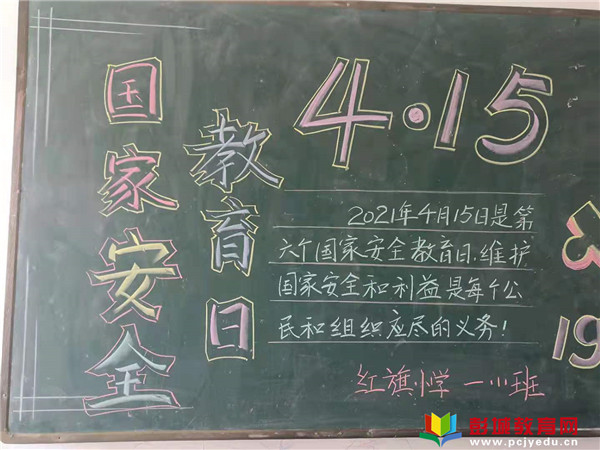 国家安全
教育日
4·15
2021年4月15日是第
六个国家安全教育日,维护
国家安全和利益是每个公
民和组织应尽的义务!
红旗小学 一小班
19
彭城教育网
www.pcjyedu.cn